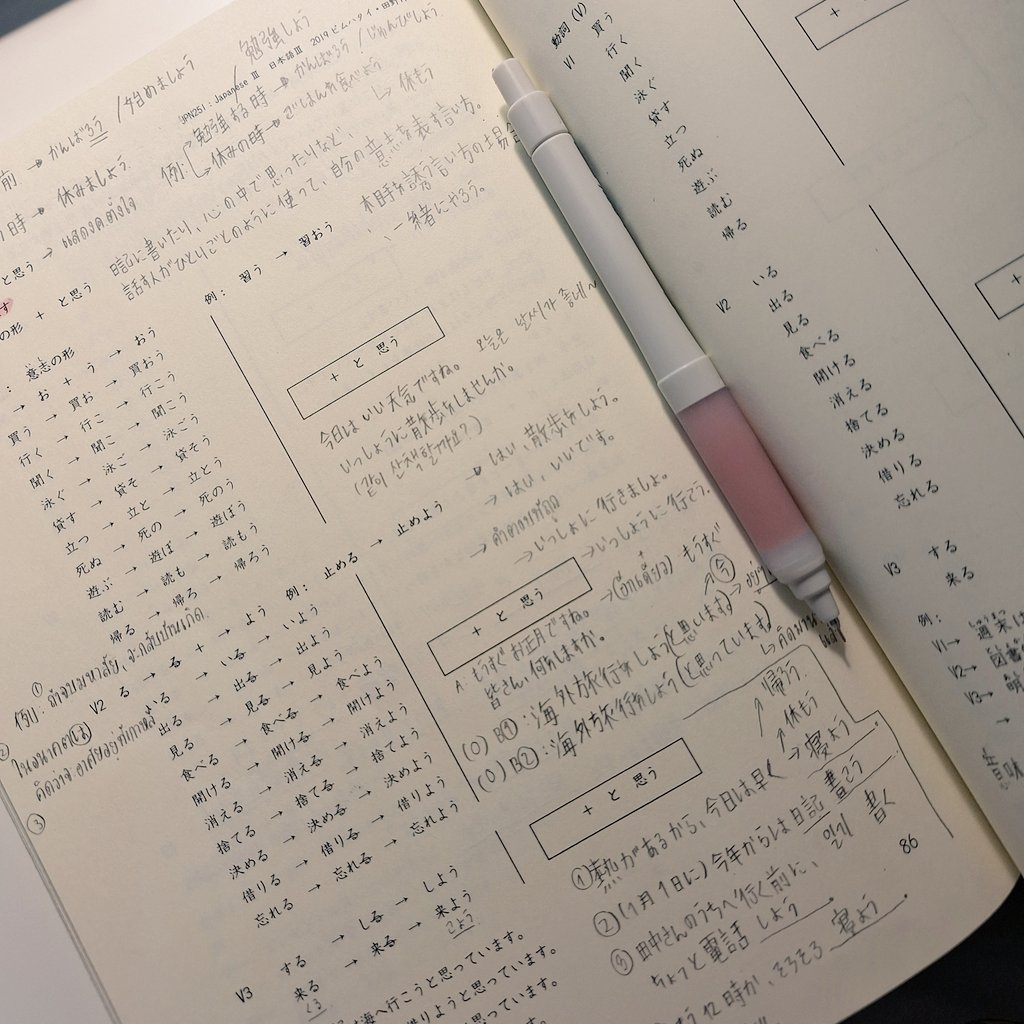 勉強しよう
/始めましょう
JPN251 : Japanese III 日本語III 2019 ピムハタイ・田野
前 → がんばろう
例: 勉強する時 → がんばろう / じゅんびしよう
休みの時 → ごはんを食べよう
↳ 休もう
時 → 休みましょう。
と思う → แสดงค.ตั้งใจ
日記に書いたり、心の中で思ったりなど、
話す人がひとりごとのように使って、自分の意志を表す言い方。
相手を誘う言い方の場合
、一緒にやろう。
の形 + と思う
例: 習う → 習おう
+ と思う
: 意志の形
→ お + う → おう
買う → 買お → 買おう
行く → 行こ → 行こう
聞く → 聞こ → 聞こう
泳ぐ → 泳ご → 泳ごう
貸す → 貸そ → 貸そう
立つ → 立と → 立とう
死ぬ → 死の → 死のう
遊ぶ → 遊ぼ → 遊ぼう
読む → 読も → 読もう
帰る → 帰ろ → 帰ろう
今日はいい天気ですね。 오늘은 날씨가 좋네~
いっしょに散歩をしませんか。
(같이 산책할까요?)
→ はい、散歩をしよう。
→ はい、いいです。
→ いっしょに行きましょ。
→ いっしょに行こう。
V2 る → る + よう 例: 止める → 止めよう
+ と思う
いる → いる → いよう
出る → 出る → 出よう
見る → 見る → 見よう
食べる → 食べる → 食べよう
開ける → 開ける → 開けよう
消える → 消える → 消えよう
捨てる → 捨てる → 捨てよう
決める → 決める → 決めよう
借りる → 借りる → 借りよう
忘れる → 忘れる → 忘れよう
もうすぐ
A: もうすぐお正月ですね。
皆さん、何をしますか。
(O) B①: 海外旅行をしよう(と思います)
(O) B②: 海外旅行をしよう(と思っています)
+ と思う
V3 する → しる → しよう
来る → 来る → 来よう
くる こよう
帰ろう
休もう
①熱があるから、今日は早く 寝よう。
②(1月1日に)今年からは日記 書こう 書く
③田中さんのうちへ行く前に、
ちょっと電話 しよう。
もう12時か、そろそろ 寝よう。
海へ行こうと思っています。
りようと思っています。
と思っています。
86
動詞 (V)
V1 買う
行く
聞く
泳ぐ
貸す
立つ
死ぬ
遊ぶ
読む
帰る
V2 いる
出る
見る
食べる
開ける
消える
捨てる
決める
借りる
忘れる
V3 する
来る
例:
V1→ 週末は
V2→ 図書
V3→
意味